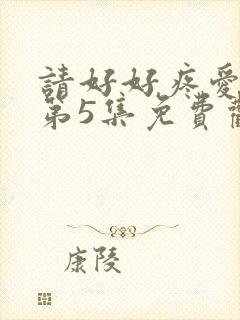 請好好疼愛
第5集免費
康陵